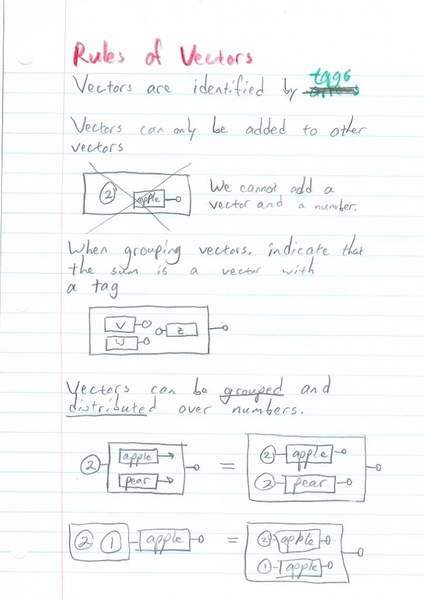 Rules of Vectors
Vectors are identified by tags
Vectors can only be added to other
vectors
2 apple
We cannot add a
vector and a number.
When grouping vectors, indicate that
the sum is a vector with
a tag
V
U
z
Vectors can be grouped and
distributed over numbers.
2 apple pear = 2 apple 2 pear
2 1 apple = 2 apple 1 apple